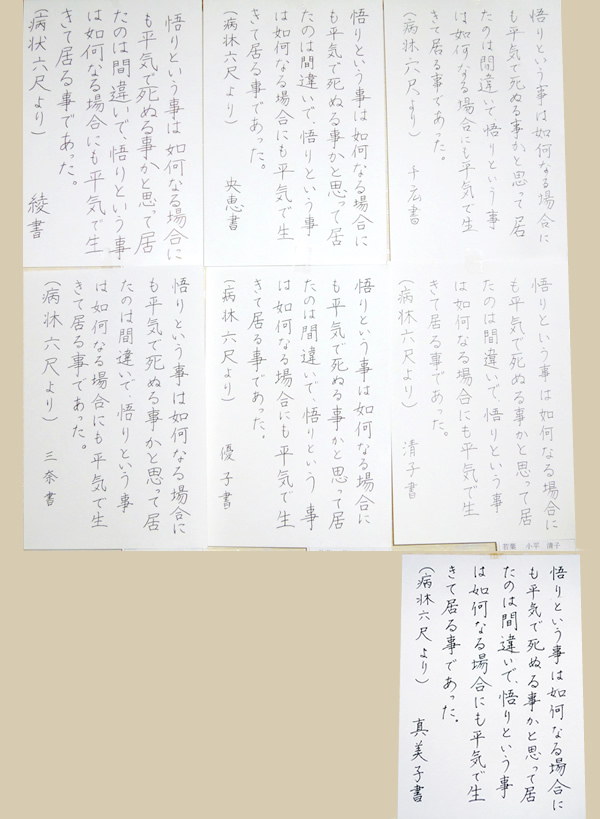 悟りという事は如何なる場合に
も平気で死ぬる事かと思って居
たのは間違いで悟りという事
は如何なる場合にも平気で生
きて居る事であった。
(病牀六尺より) 千広書
悟りという事は如何なる場合に
も平気で死ぬる事かと思って居
たのは間違いで、悟りという事
は如何なる場合にも平気で生
きて居る事であった。
(病牀六尺より) 央恵書
悟りという事は如何なる場合に
も平気で死ぬる事かと思って居
たのは間違いで、悟りという事
は如何なる場合にも平気で生
きて居る事であった。
(病状六尺より) 綾書
悟りという事は如何なる場合に
も平気で死ぬる事かと思って居
たのは間違いで、悟りという事
は如何なる場合にも平気で生
きて居る事であった。
(病牀六尺より) 清子書
若葉 小平 清子
悟りという事は如何なる場合に
も平気で死ぬる事かと思って居
たのは間違いで、悟りという事
は如何なる場合にも平気で生
きて居る事であった。
(病牀六尺より) 優子書
悟りという事は如何なる場合に
も平気で死ぬる事かと思って居
たのは間違いで、悟りという事
は如何なる場合にも平気で生
きて居る事であった。
(病牀六尺より) 三奈書
悟りという事は如何なる場合に
も平気で死ぬる事かと思って居
たのは間違いで、悟りという事
は如何なる場合にも平気で生
きて居る事であった。
(病牀六尺より) 真美子書